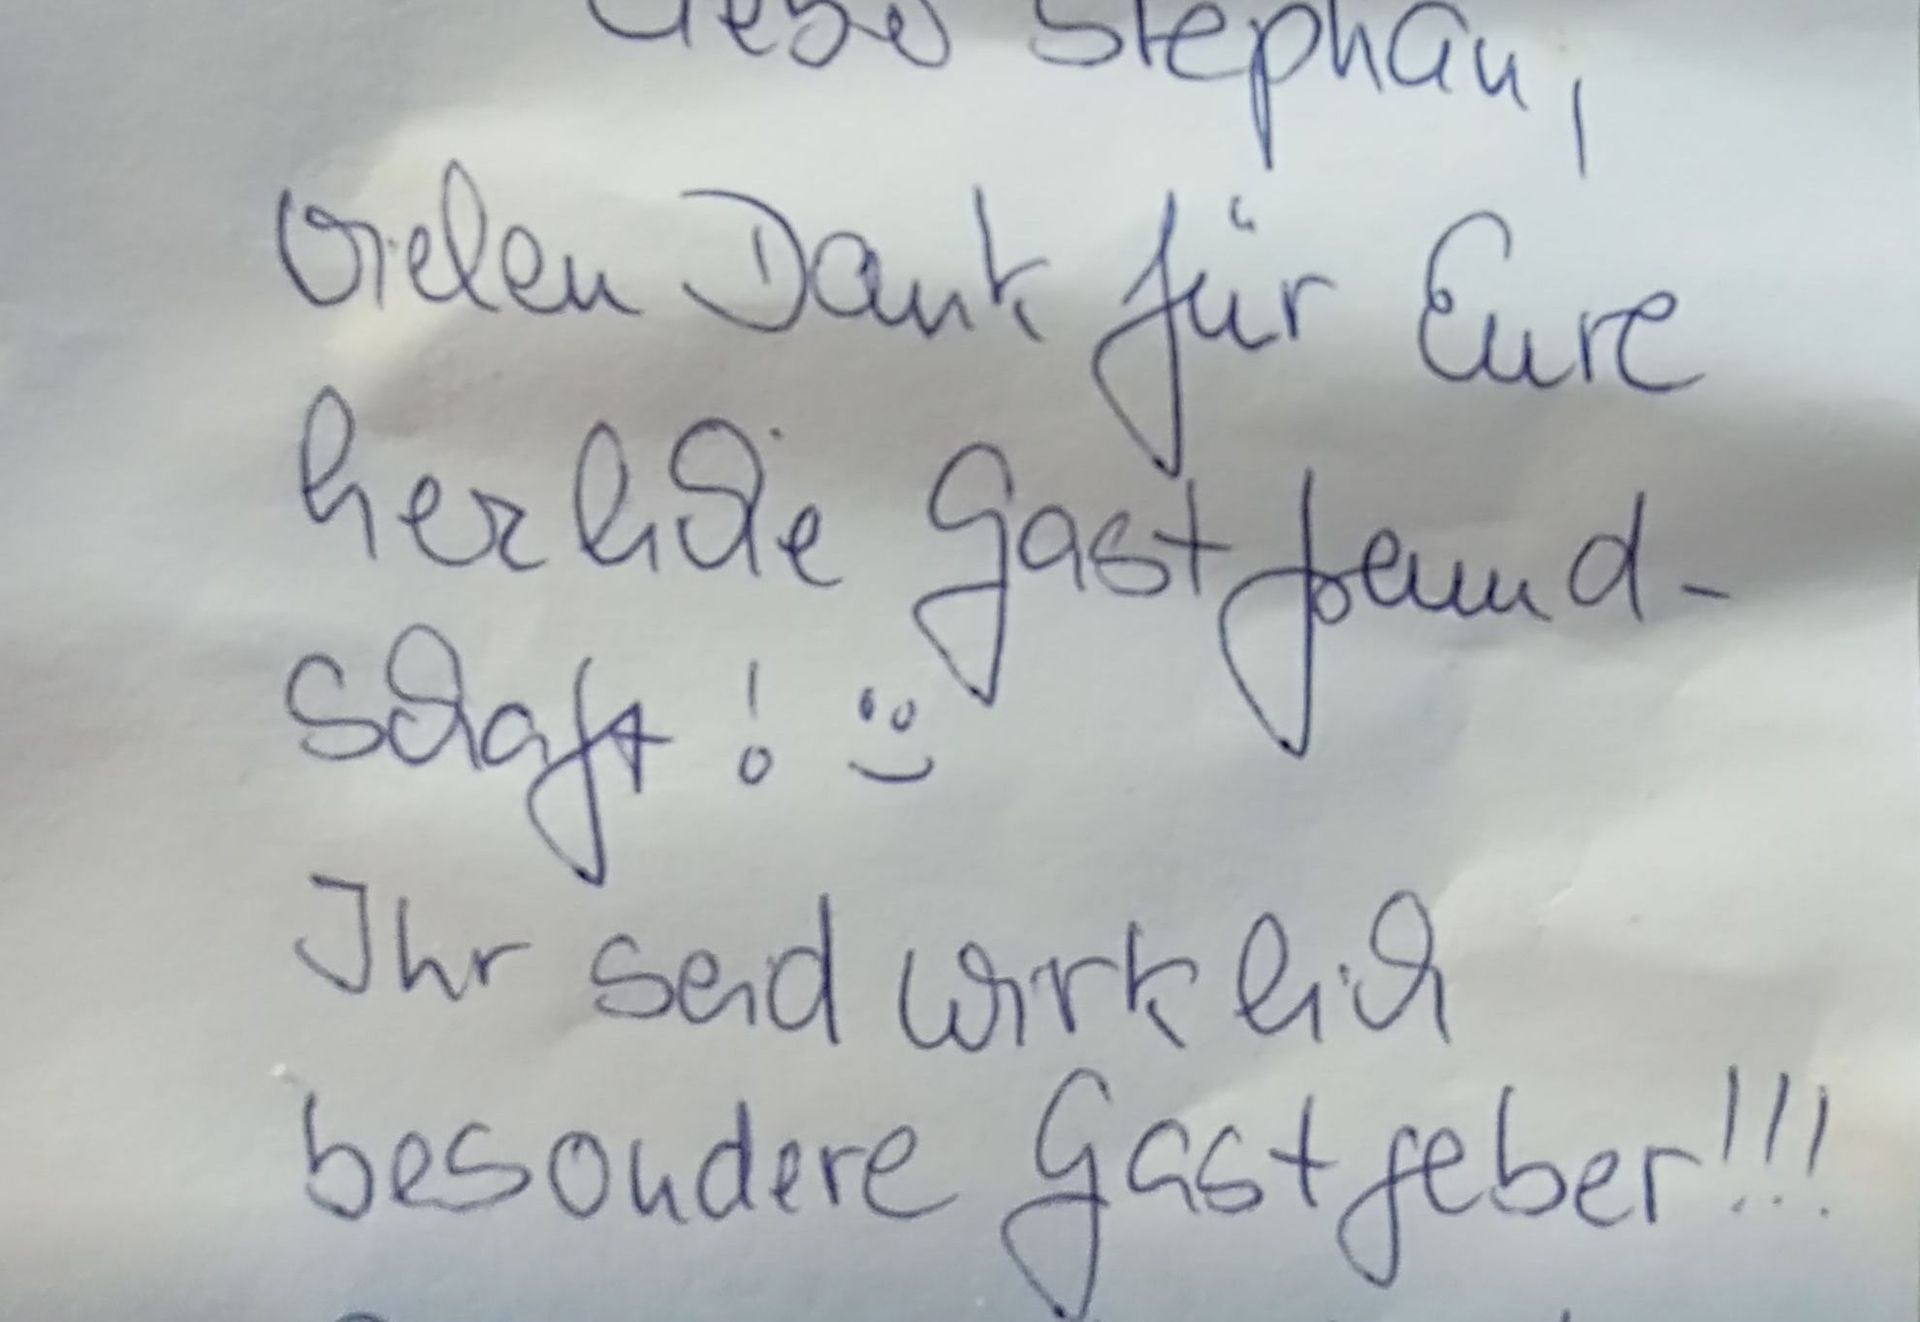 Lieber Stephan,
vielen Dank für Eure
herzliche Gastfreund-
schaft! :)
Ihr seid wirklich
besondere Gastgeber!!!